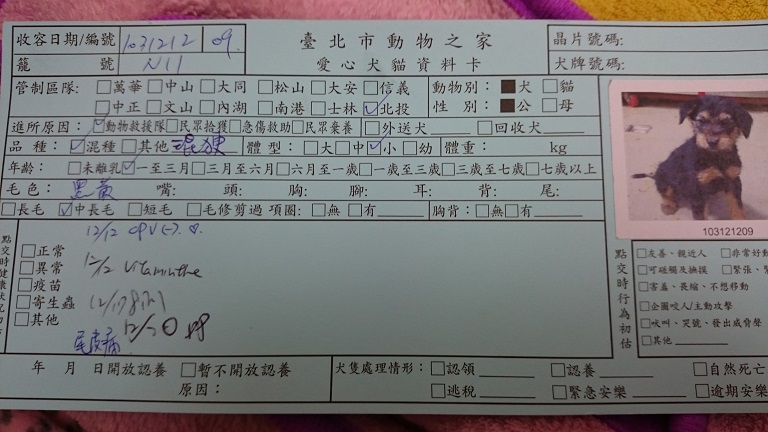 收容日期/編號 1031212 09. 臺北市動物之家 晶片號碼:
籠 號 N11 愛心犬貓資料卡 犬牌號碼:
管制區隊: □萬華□中山□大同 □松山□大安□信義 動物別: ■犬 □貓
□中正□文山□內湖 □南港□士林☑北投 性 別: ■公 □母
進所原因: ☑動物救援隊□民眾拾獲□急傷救助□民眾棄養 □外送犬 □回收犬
品 種: ☑混種□其他 混梗 體 型: □大□中☑小□幼 體重: kg
年齡: □未離乳☑一至三月□三月至六月□六月至一歲□一歲至三歲□三歲至七歲□七歲以上
毛色: 黑黃 嘴: 頭: 胸: 腳: 耳: 背: 尾:
□長毛 ☑中長毛 □短毛 □毛修剪過 項圈: □無 □有 胸背: □無□有
103121209
點交時健康狀況初估
□正常
□異常
□疫苗
□寄生蟲
□其他
12/12 CPV(-).
12/12
12/17
12/20
點交時行為初估
□友善、親近人 □非常好動
□可碰觸及撫摸 □緊張、
□害羞、畏縮、不想移動
□企圖咬人/主動攻擊
□吠叫、哭號、發出威脅聲
□其他
年 月 日開放認養 □暫不開放認養
原因:
犬隻處理情形: □認領 □認養 □自然死亡
□逃脫 □緊急安樂 □逾期安樂